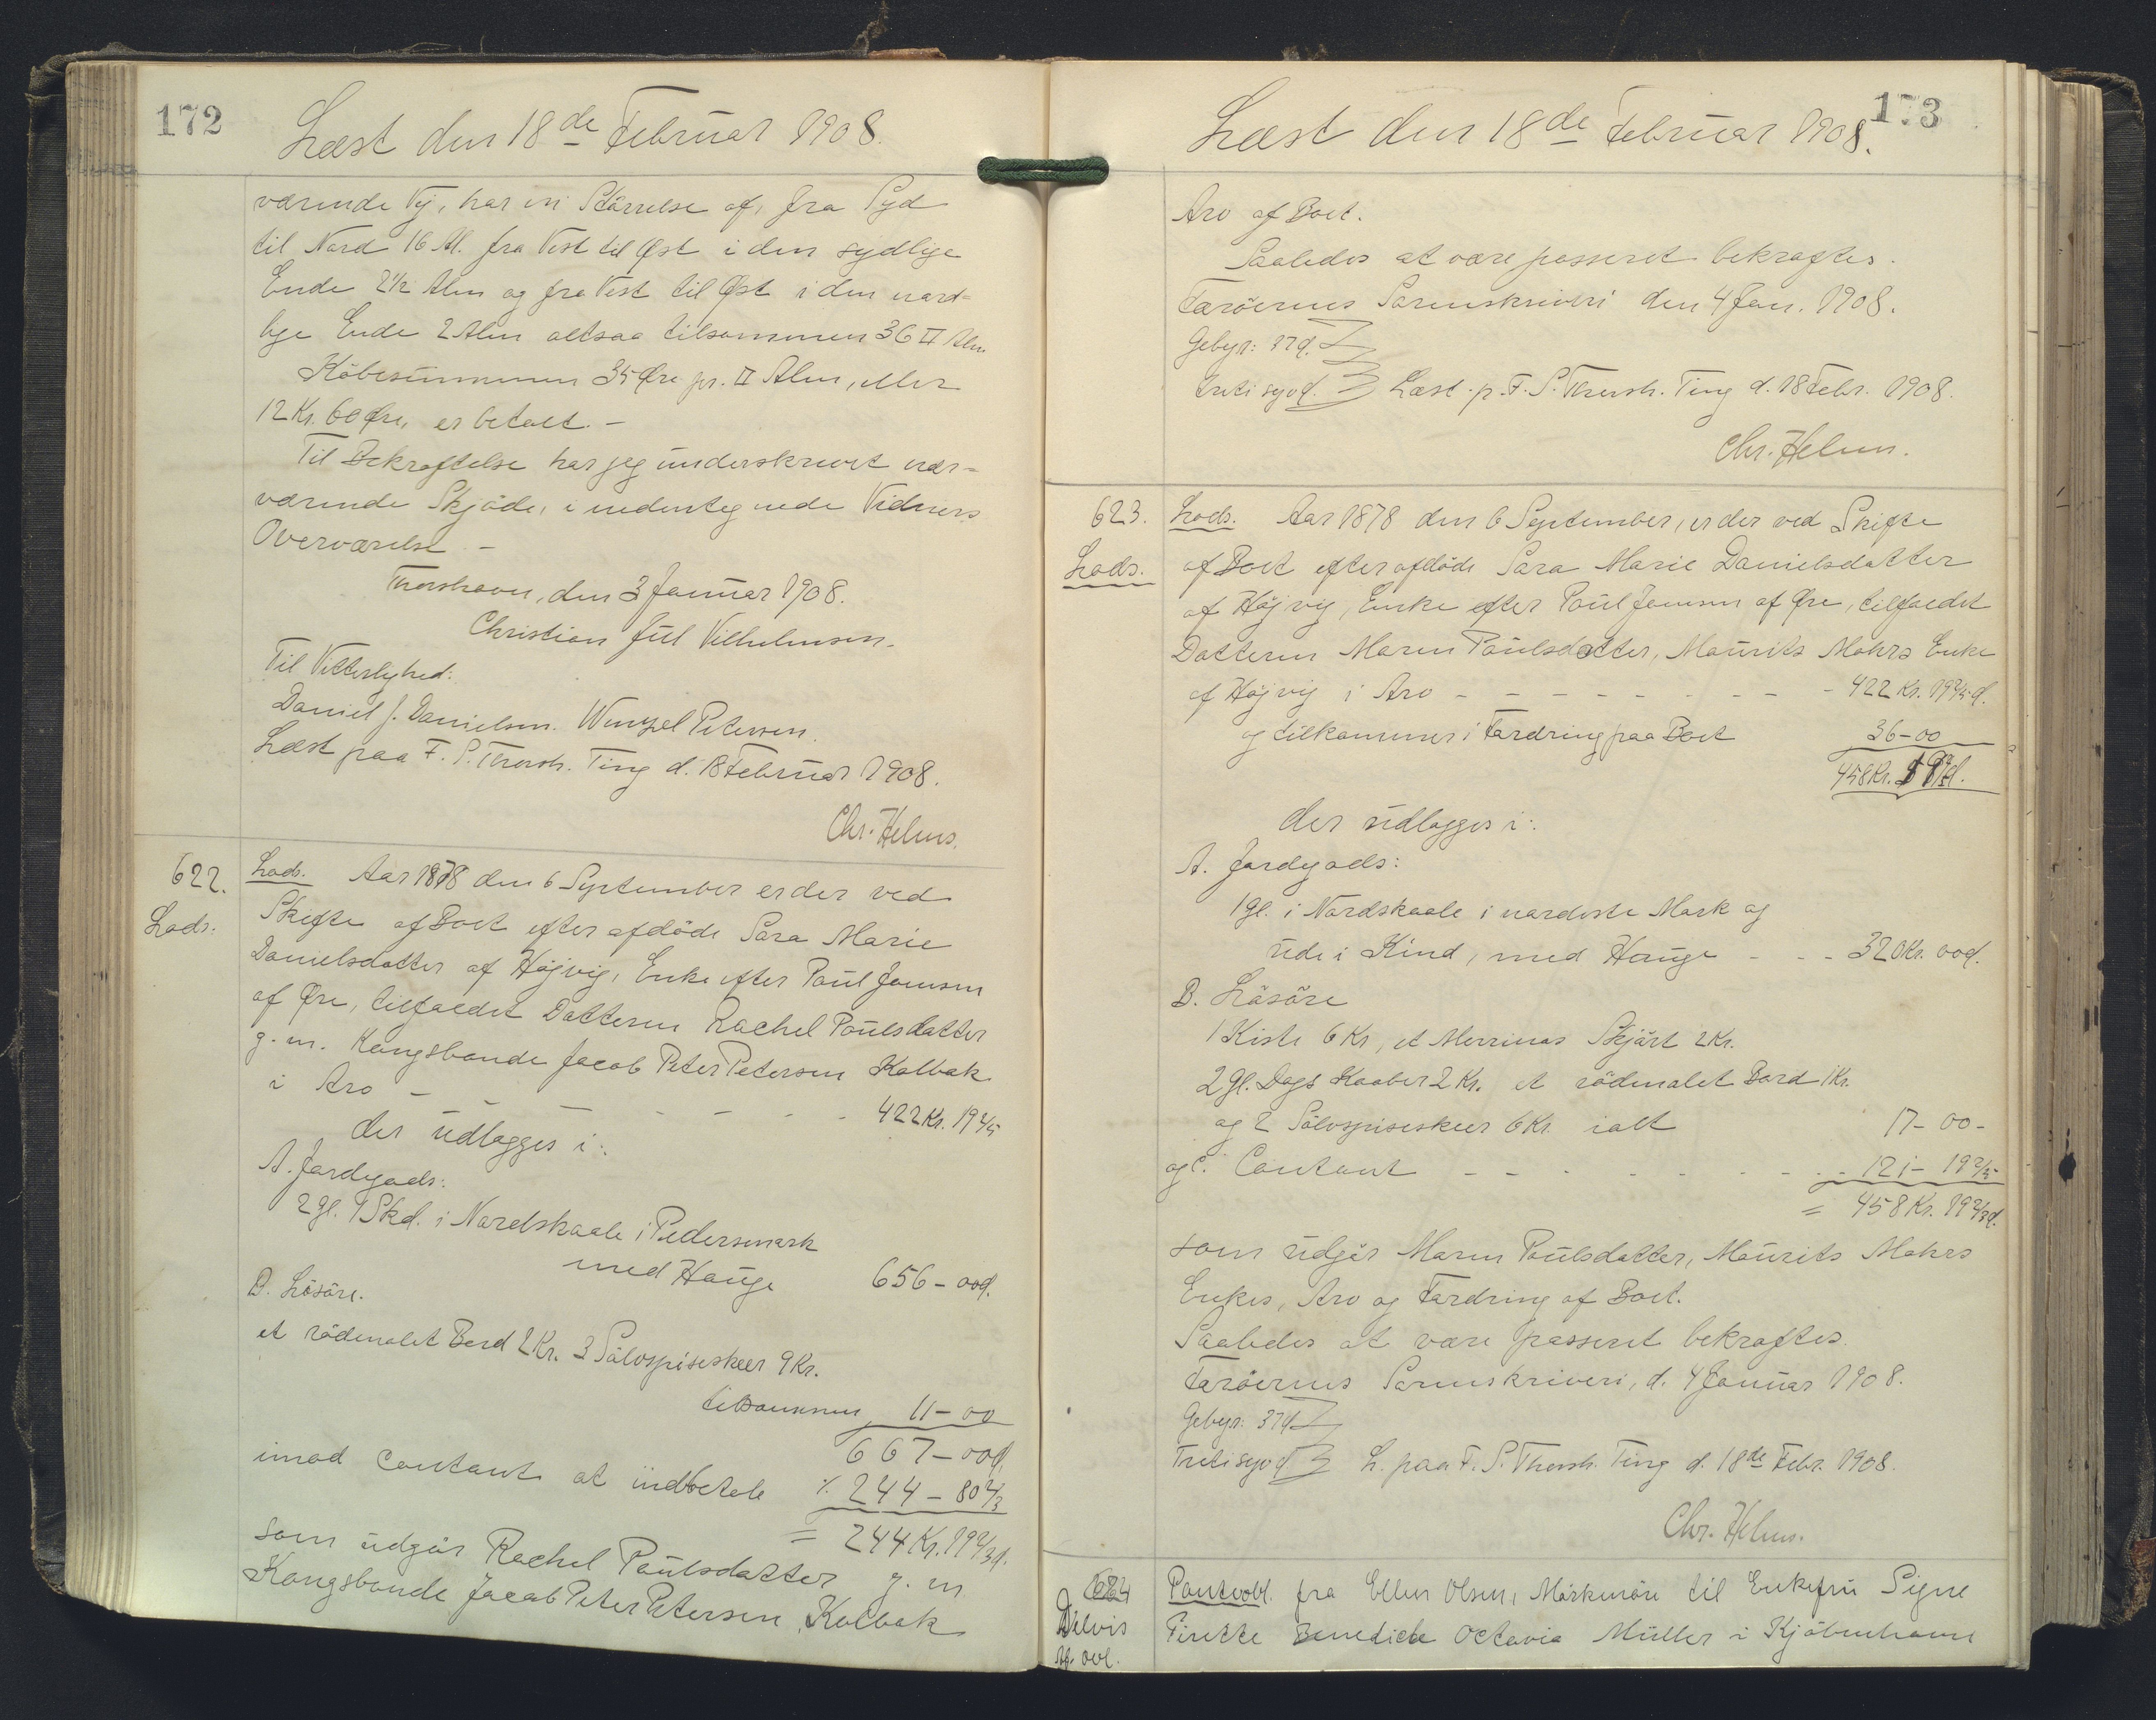 172
Læst den 18de Februar 1908.
værende Vej, har en Störrelse af, fra Syd
til Nord 16 Al. fra Vest til Øst i den sydlige
Ende 2 1/2 Alen og fra Vest til Øst i den nord=
lige Ende 2 Alen altsaa tilsammen 36 □ Alen
Köbesummen 35 Øre pr. □ Alen, eller
12 Kr. 60 Øre, er betalt. -
Til Bekræftelse har jeg underskrevet nær=
værende Skjöde, i undertegnede Vidners
Overværelse -
Thorshavn, den 3 Januar 1908.
Christian Juul Vilhelmsen.
Til Vitterlighed:
Daniel J. Danielsen. Wenzel Petersen.
Læst paa F. S. Thorsh. Ting d. 18 Februar 1908.
Chr. Helms.
622. Lods. Aar 1878 den 6 September er der ved
Lods: Skifte af Boet efter afdöde Sara Marie
Danielsdatter af Højvig, Enke efter Poul Joensen
af Øre, tilfaldet Datteren Rachel Poulsdatter
g. m. Kongsbonde Jacob Peter Petersen Kolbak
i Arv - - - - - - - 422 Kr. 19 2/5
der udlægges i:
A. Jordgods:
2 gl. 1 Skd. i Nordskaale i Pedersmark
med Hauge 656 - 00 d.
B. Lösöre.
et rödmalet Bord 2 Kr. 3 Sölvspiseskeer 9 Kr.
tilsammen 11 - 00
667 - 00 d.
imod contant at indbetale ./. 244 - 80 2/3
= 244 Kr. 19 2/3 d.
som udgör Rachel Poulsdatter g. m.
Kongsbonde Jacob Peter Petersen, Kolbak
173
Læst den 18de Februar 1908.
Arv af Boet.
Saaledes at være passeret bekræftes.
Færöernes Sorenskriveri den 4 Jan. 1908.
Gebyr: 37 d.
treti syv d. Læst p. F. S. Thorsh. Ting d. 18 Febr. 1908.
Chr. Helms.
623. Lods. Aar 1878 den 6 September, er der ved Skifte
Lods. af Boet efter afdöde Sara Marie Danielsdatter
af Højvig, Enke efter Poul Joensen af Øre, tilfaldet
Datteren Maren Poulsdatter, Mourits Mohrs Enke
af Højvig i Arv - - - - - - - - 422 Kr. 19 2/5 d.
og tilkommer i Fordring paa Boet 36 - 00
458 Kr. 19 2/3 d.
der udlægges i:
A. Jordgods:
1 gl. i Nordskaale i nordeste Mark og
ude i Kind, med Hauge - - - 320 Kr. 00 d.
B. Lösöre
1 Kiste 6 Kr, et Merrinos Skjört 2 Kr.
2 gl. Dags Kaaber 2 Kr. et rödmalet Bord 1 Kr.
og 2 Sölvspiseskeer 6 Kr. ialt 17 - 00 -
og C. Contant - - - - - - - 121 - 19 2/5
= 458 Kr. 19 2/3 d.
som udgör Maren Poulsdatter, Mourits Mohrs
Enkes, Arv og Fordring af Boet.
Saaledes at være passeret bekræftes.
Færöernes Sorenskriveri, d. 4 Januar 1908.
Gebyr: 37 d
Treti syv d L. paa F. S. Thorsh. Ting d. 18de Febr. 1908.
Chr. Helms.
624 Pantobl. fra Ellen Olsen, Mörkenöre til Enkefru Signe
Delvis Firette Benedicte Octavia Müller i Kjöbenhavn